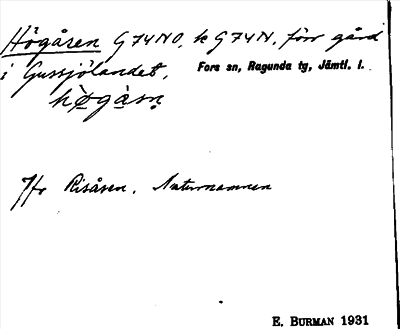 Högåsen G74NO, k G74N, förr gård
i Gussjölandet, Fors sn, Ragunda tg, Jämtl. l.
hø̀gàsn̥
Jfr Risåsen, Naturnamnen
E. BURMAN 1931